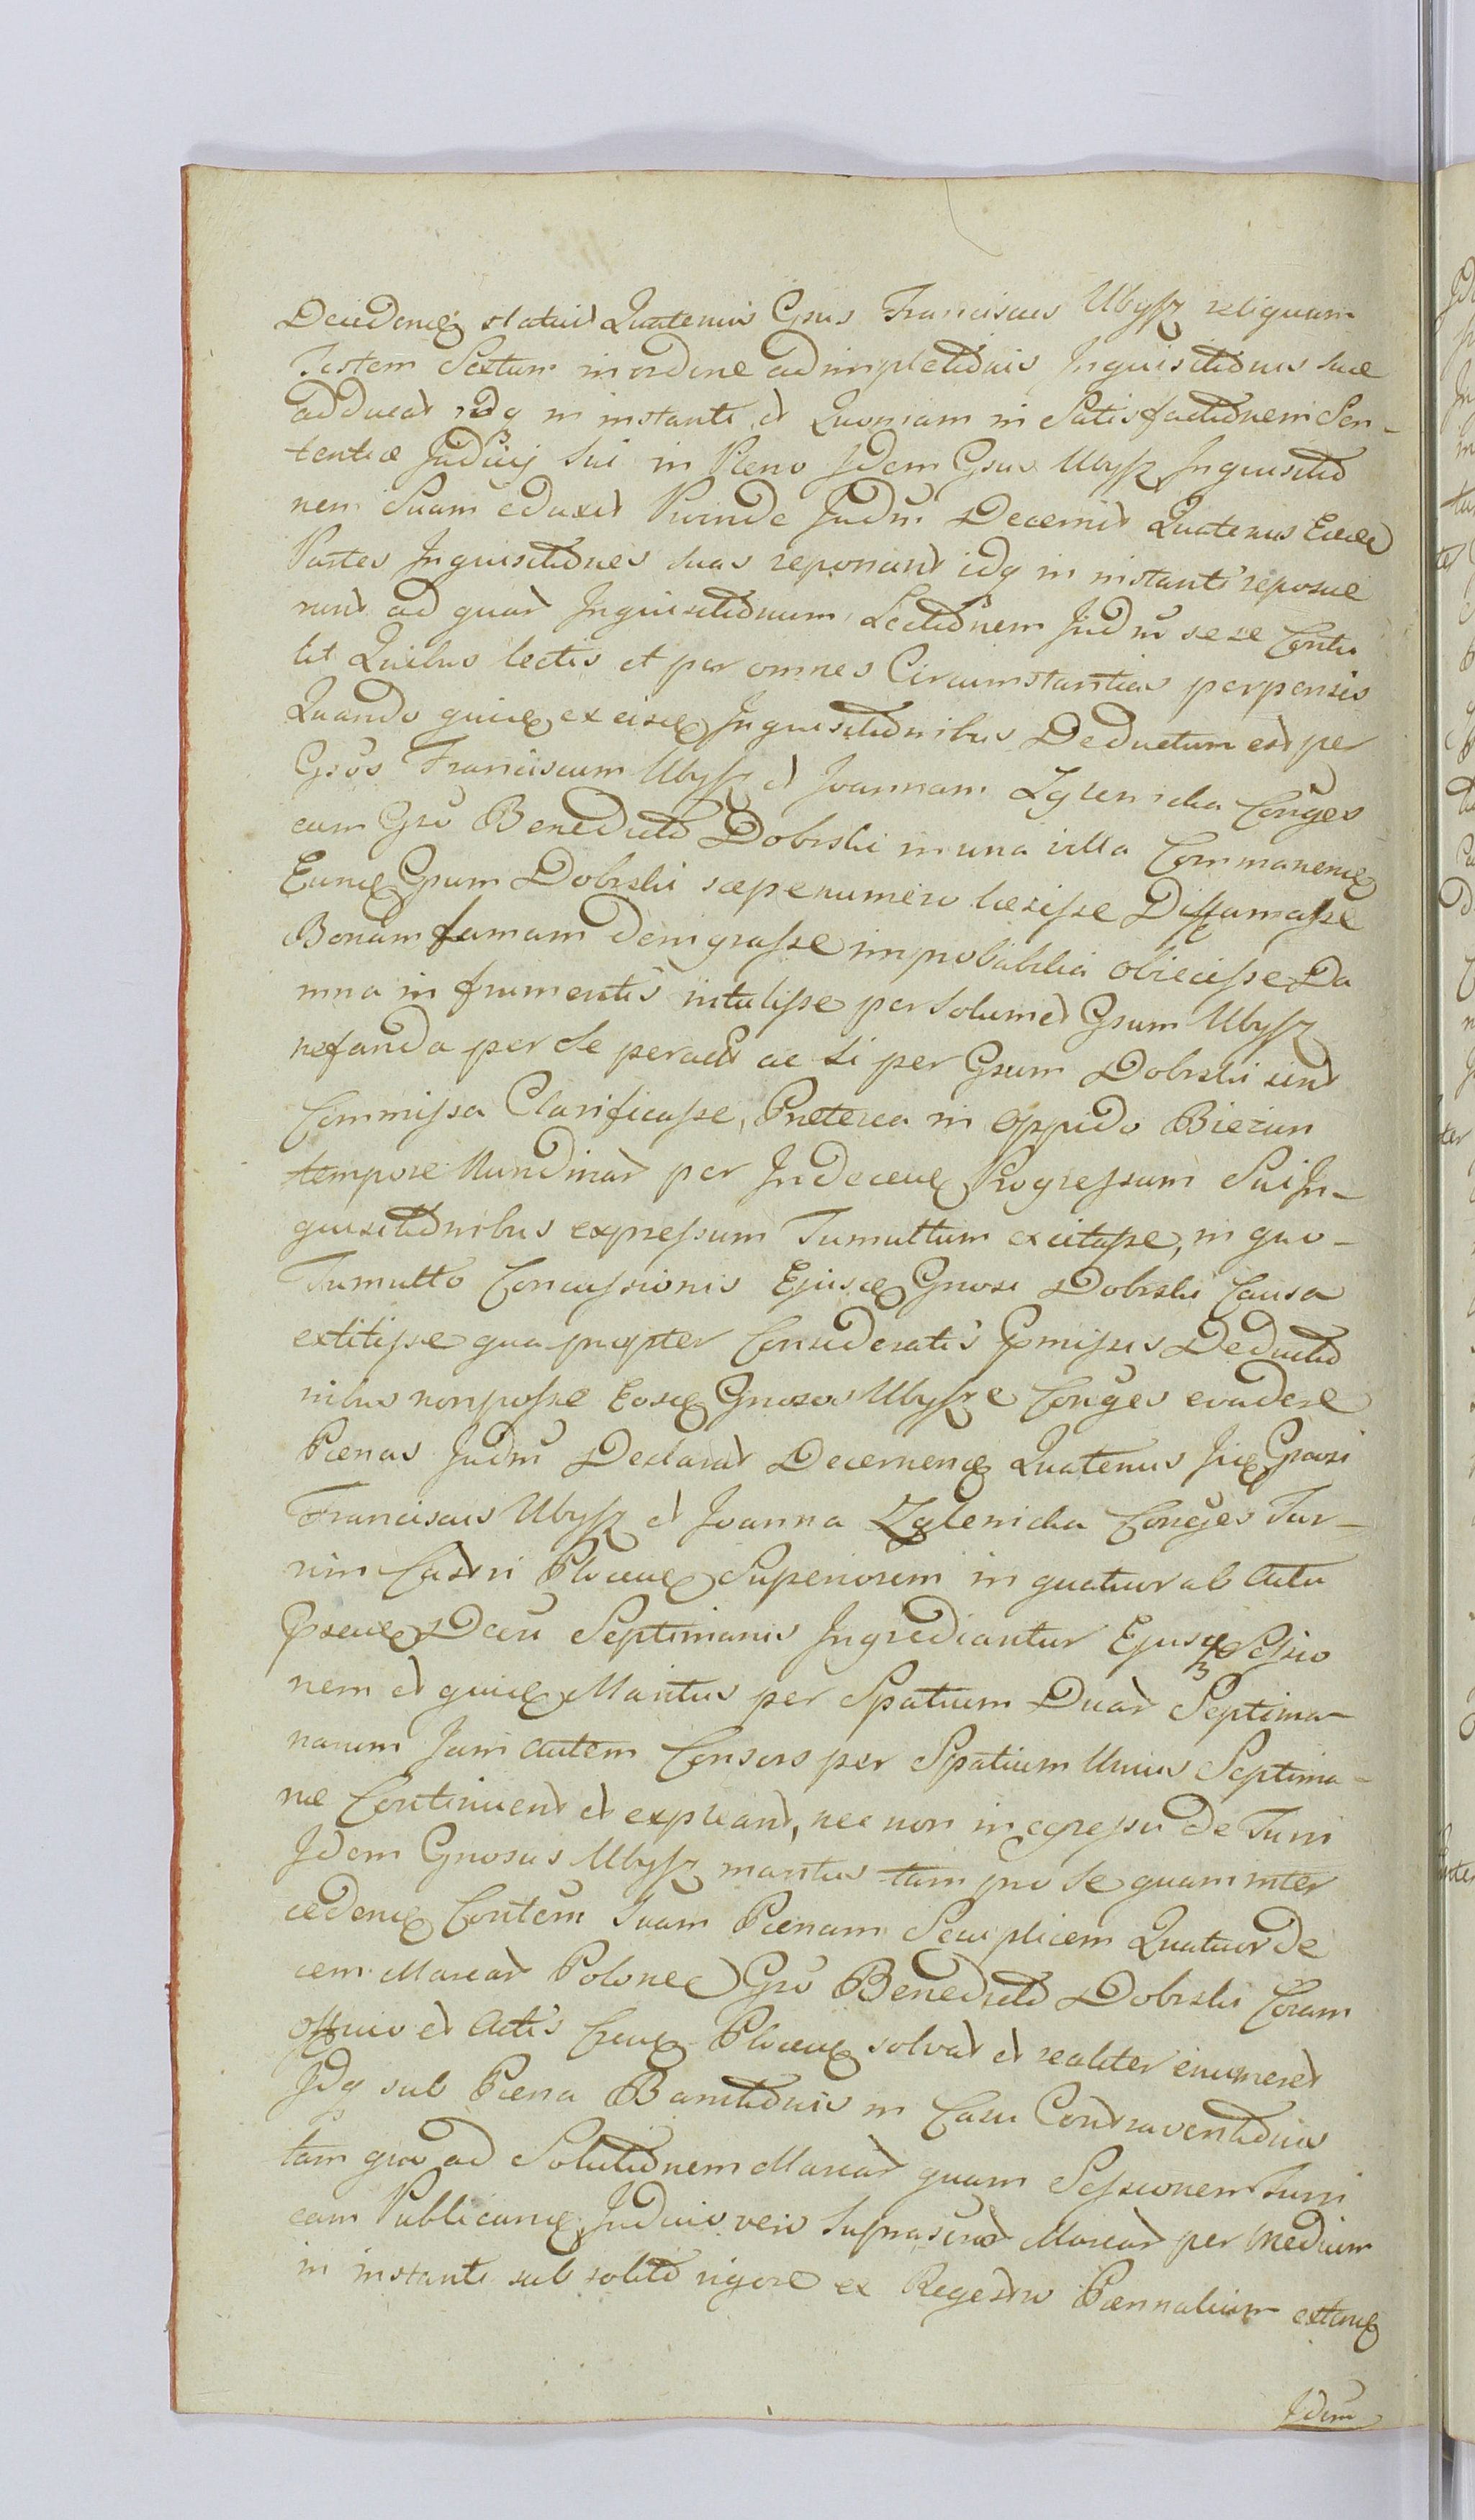 DecidenĘ statuit Quatenus Gsus Franciscus Ubysz reliquam
Testem Sextum in ordine adimpletiõnis Inquisitiõnis suæ
adducat idq in instanti et Quoniam in Satisfactiõnem Sen-
tentiæ Judicij sui in Pleno Idem Gsus Ubysz Inquisitiõ
nem Suam eduxit Proinde Judm̃ Decernit Quatenus Eædẽ
Partes Inquisitiõnes suas reponant idq in instanti reposue
runt ad quar Inquisitiõnum Lectiõnem Judm̃ sese Contu
lit Quibus lectis et per omnes Circumstantias perpensis
Quando quidẽ ex eisdẽ Inquisitiõnibus Deductum est per
Gsõs Franciscum Ubysz et Joannam Zglenicka Conges
cum Gso Benedicto Dobrski in una villa Commanenẽ
Eundẽ Gsum Dobrski sæpenumero læsisse Diffamasse
Bonam famam denigrasse improbabilia obiecisse Da
mna in frumentis intulisse per Solumet Gsum Ubysz
nefanda per se peracta ac si per Gsum Dobrski sint
Commissa Clarificasse, Præterea in Oppido Biezun
tempore Nundinar per Indecenẽ Progressum Sui In-
quisitiõnibus expressum Tumultum excitasse, in quo-
Tumulto Concussionis Ejusdẽ Gnosi Dobrski Causa
extitisse qua propter Consideratis Præmissis Deductiõ
nibus non posse Eosdẽ Gnosos Ubysze Conges evadere
Pænas Judm̃ Declarat Decernenẽ Quatenus Iidẽ Gnosi
Franciscus Ubysz et Joanna Zglenicka Conges Tur-
rim Castri Plocenẽ Superiorem in quatuor ab Actu
Præsenẽ Dcti Septimanis Ingrediantur Ejusdẽ Sessio
nem et quidẽ Maritus per Spatium Duar Septima-
narum Jam autem Consors per Spatium Unius Septima-
næ Continuent et expleant, nec non in egressu de Turri
Idem Gnosus Ubysz maritus tam pro se quam inter
cedenẽ Contem Suam Pænam Sexiplicem Quatuorde
cem Marcar Polonẽ Gso Benedicto Dobrski Coram
officio et Actis Crenẽ Plocenẽ solvat et realiter enumeret
Idq sub Pæna Banitiõnis in Casu Contraventiõnis
tam quo ad Solutiõnem Marcar quam Sessionem Turri
cam Publicanẽ, Judicio vero Suprascript Marcar per Medium
in instanti sub solito rigore ex Regestro Pænnalium extenẽ
Idem